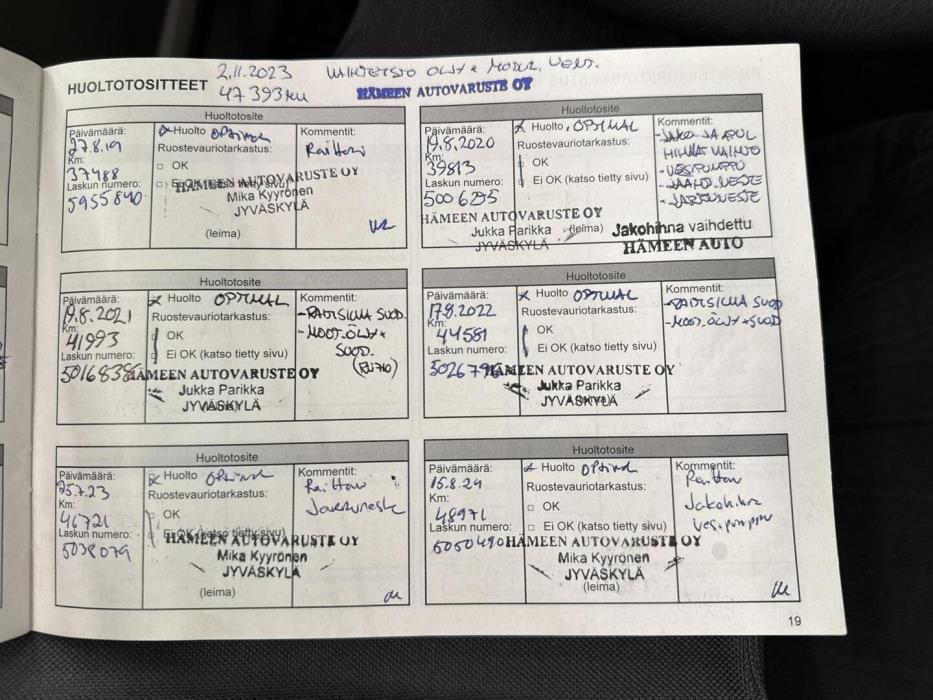 HUOLTOTOSITTEET
2.11.2023
47 393 km
HÄMEEN AUTOVARUSTE OY
Huoltotosite
Päivämäärä:
27.8.19
Km:
37488
Laskun numero:
5955840
Huolto OPTIMAL
Ruostevauriotarkastus:
OK
HÄMEEN AUTOVARUSTE OY
Mika Kyyrönen
JYVÄSKYLÄ
(leima)
Kommentit:
Huoltotosite
Päivämäärä:
19.8.2020
Km:
39813
Laskun numero:
5006295
Huolto OPTIMAL
Ruostevauriotarkastus:
OK
Ei OK (katso tietty sivu)
HÄMEEN AUTOVARUSTE OY
Jukka Parikka
(leima)
JYVÄSKYLÄ
Kommentit:
- JAKO JA APUL
HIHNA VAIHTO
- VESIPUMPPU
- JÄÄHD. NESTE
- JARRUNESTE
Jakohihna vaihdettu
HÄMEEN AUTO
Huoltotosite
Päivämäärä:
19.8.2021
Km:
41993
Laskun numero:
Huolto OPTIMAL
Ruostevauriotarkastus:
OK
Ei OK (katso tietty sivu)
HÄMEEN AUTOVARUSTE OY
Jukka Parikka
JYVÄSKYLÄ
Kommentit:
- RAITISILMA SUOD.
- MOOT.ÖLJY +
SUOD.
Huoltotosite
Päivämäärä:
17.8.2022
Km:
44581
Laskun numero:
Huolto OPTIMAL
Ruostevauriotarkastus:
OK
Ei OK (katso tietty sivu)
HÄMEEN AUTOVARUSTE OY
Jukka Parikka
JYVÄSKYLÄ
Kommentit:
- RAITISILMA SUOD
- MOOT.ÖLJY + SUOD
Huoltotosite
Päivämäärä:
25.7.23
Km:
46721
Laskun numero:
5038079
Huolto Optimal
Ruostevauriotarkastus:
OK
Ei OK (katso tietty sivu)
HÄMEEN AUTOVARUSTE OY
Mika Kyyrönen
JYVÄSKYLÄ
(leima)
Kommentit:
Jarruneste
Huoltotosite
Päivämäärä:
15.8.24
Km:
48971
Laskun numero:
5050490
Huolto Optimal
Ruostevauriotarkastus:
OK
Ei OK (katso tietty sivu)
HÄMEEN AUTOVARUSTE OY
Mika Kyyrönen
JYVÄSKYLÄ
(leima)
Kommentit:
19